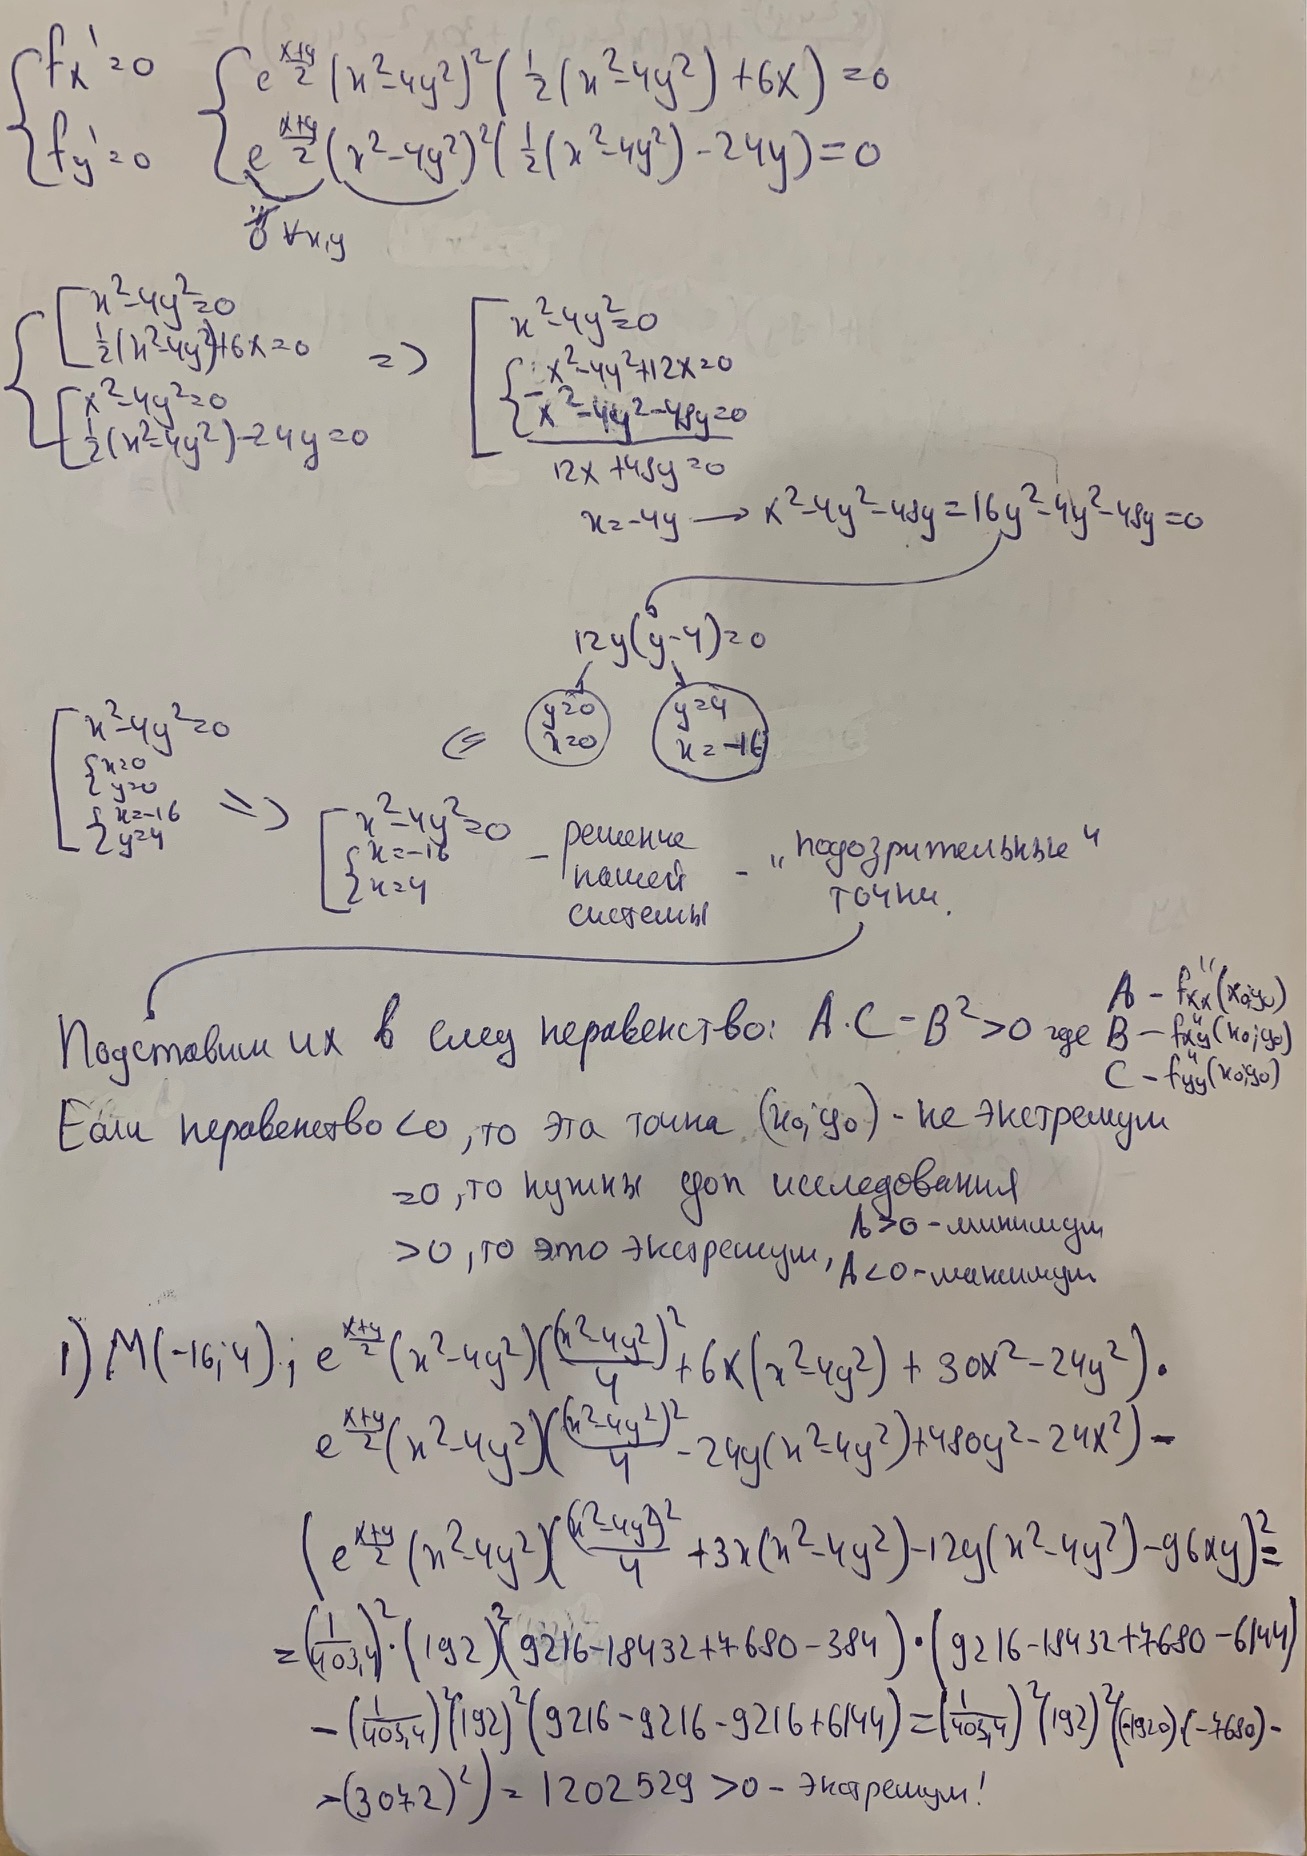 { fx' = 0 { e^((x+y)/2) (x²-4y²)² (½(x²-4y²)+6x) = 0
{ fy' = 0 { e^((x+y)/2) (x²-4y²)² (½(x²-4y²)-24y) = 0
0 ∀x,y
{ [ x²-4y²=0
[ ½(x²-4y²)+6x=0
[ x²-4y²=0
[ ½(x²-4y²)-24y=0
=> [ x²-4y²=0
{ x²-4y²+12x=0
- { x²-4y²-48y=0
12x+48y=0
x=-4y → x²-4y²-48y=16y²-4y²-48y=0
12y(y-4)=0
y=0 y=4
x=0 x=-16
<=
[ x²-4y²=0
{ x=0
{ y=0
{ x=-16
{ y=4
=> [ x²-4y²=0
{ x=-16
{ x=4
- решение
нашей
системы
- „подозрительные"
точки.
Подставим их в след неравенство: A·C-B²>0 где
A - fxx''(x0;y0)
B - fxy''(x0;y0)
C - fyy''(x0;y0)
Если неравенство <0, то эта точка (x0;y0) - не экстремум
=0, то нужны доп исследования
>0, то это экстремум, A>0 - минимум
A<0 - максимум
1) M(-16;4); e^((x+y)/2) (x²-4y²)((x²-4y²)²/4 + 6x(x²-4y²) + 30x²-24y²)·
e^((x+y)/2) (x²-4y²)((x²-4y²)²/4 - 24y(x²-4y²)+480y²-24x²) -
(e^((x+y)/2) (x²-4y²)((x²-4y²)²/4 + 3x(x²-4y²)-12y(x²-4y²)-96xy)² =
= (1/403,4)²·(192)²(9216-18432+7680-384)·(9216-18432+7680-6144)
- (1/403,4)²(192)²(9216-9216-9216+6144) = (1/403,4)²(192)²((-1920)·(-7680)-
-(3072)²) = 1202529 >0 - экстремум!